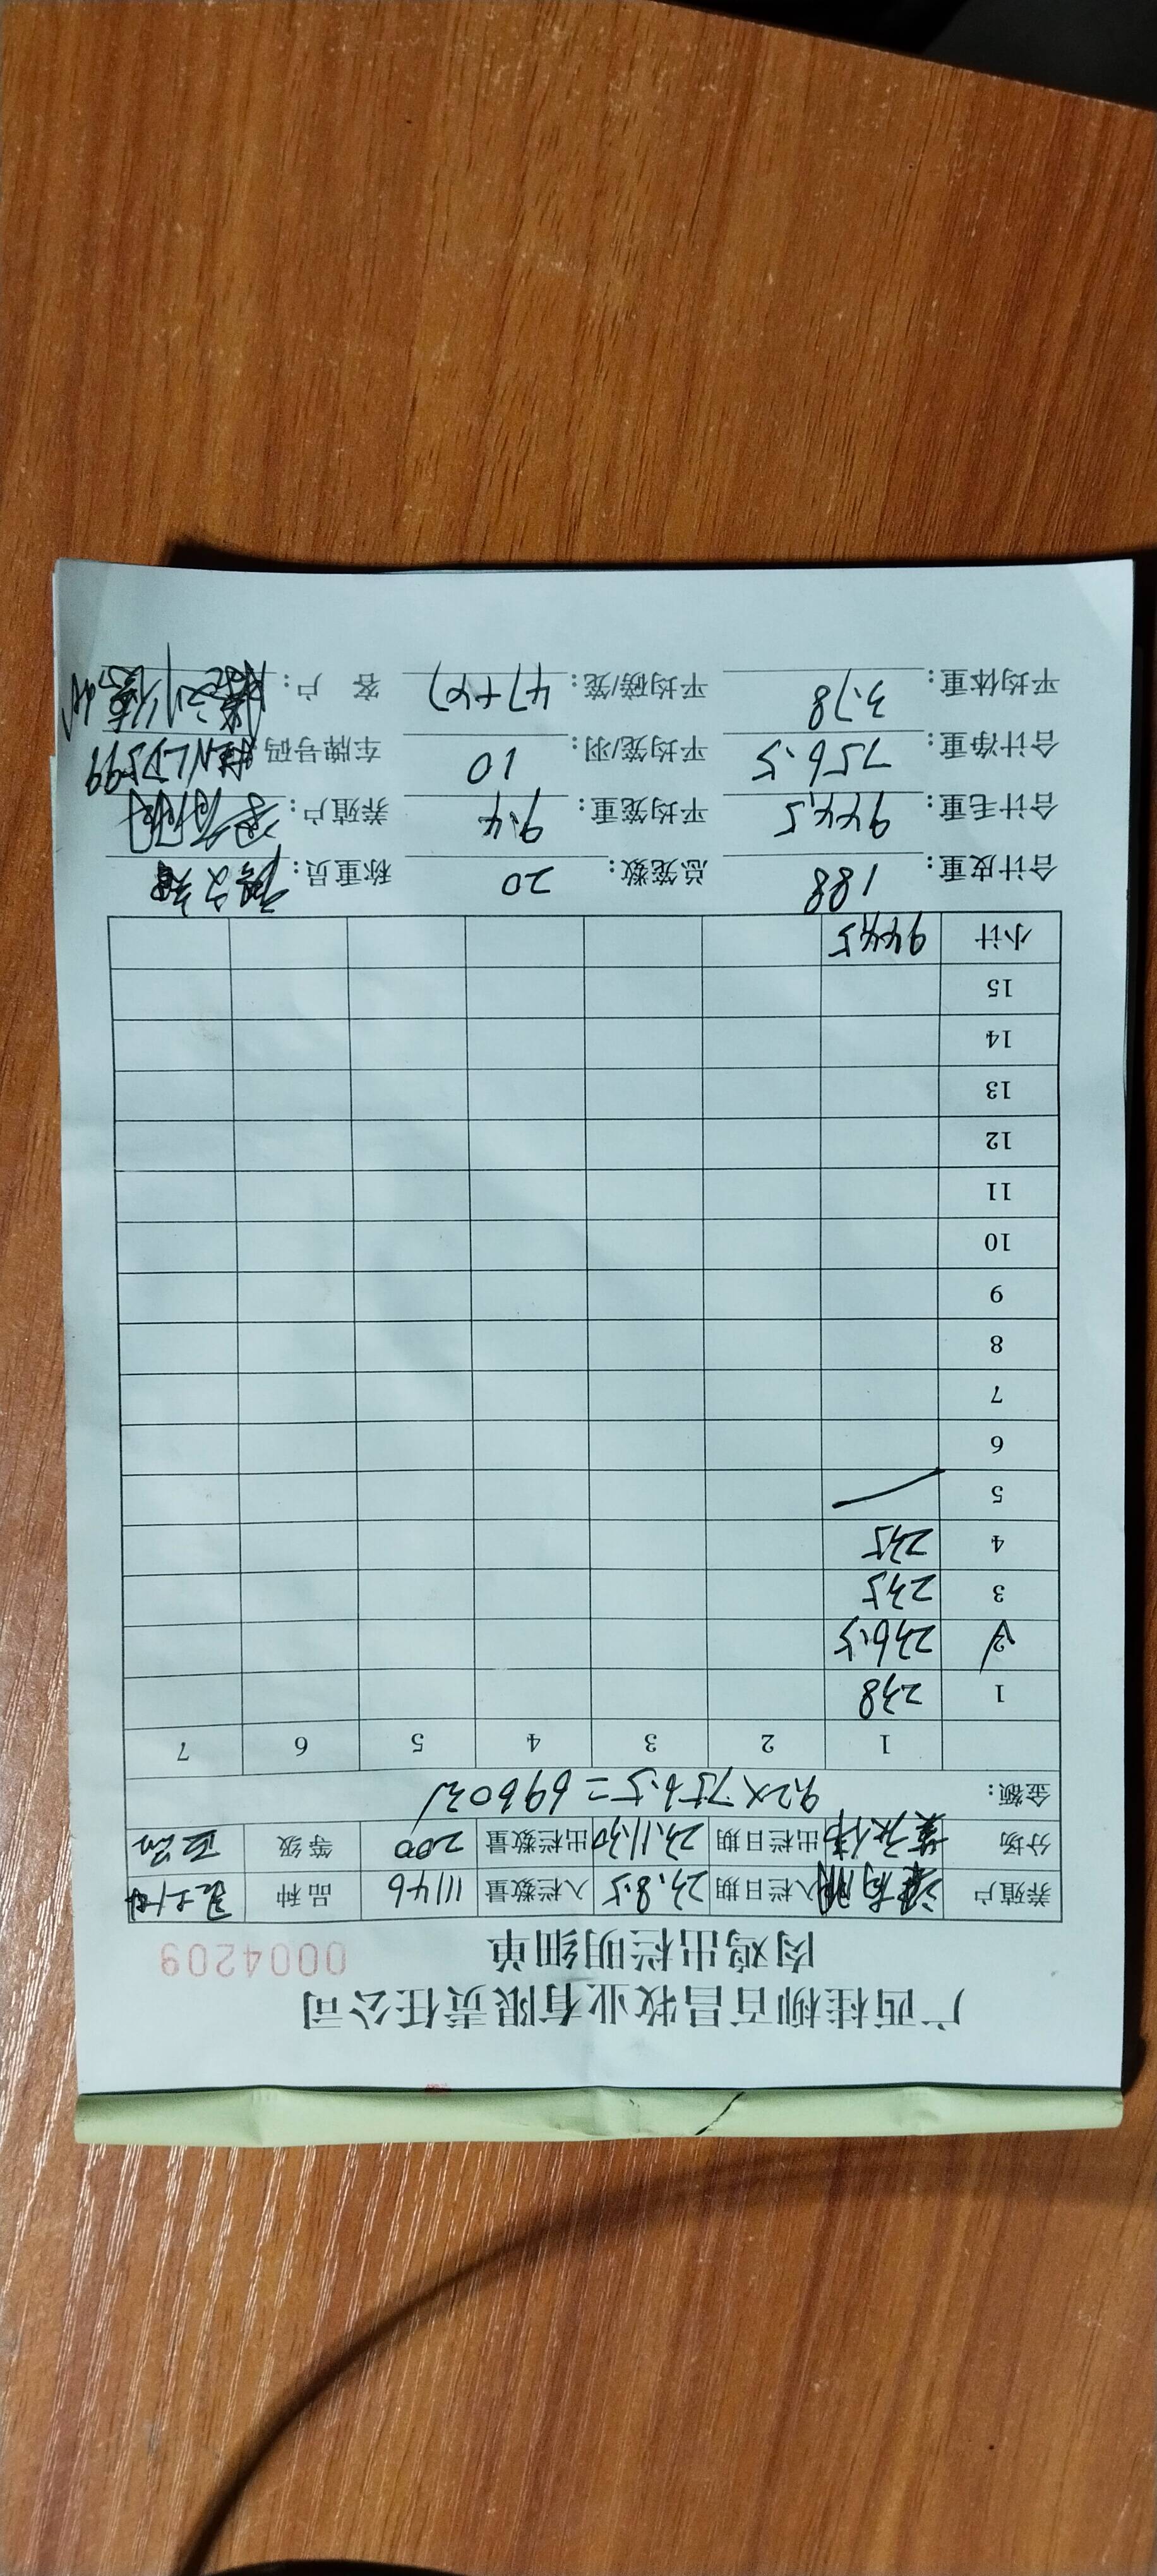 广西桂柳百昌牧业有限责任公司
肉鸡出栏明细单 0004209
养殖户 入栏日期 23.8.5 入栏数量 11146 品种
分场 出栏日期 23.11.30 出栏数量 200 等级 正品
金额: 9.2×756.5=6960元
1 2 3 4 5 6 7
1 238
2 236.5
3 235
4 235
5
6
7
8
9
10
11
12
13
14
15
小计 944.5
合计皮重: 188 总笼数: 20 称重员:
合计毛重: 944.5 平均笼重: 9.4 养殖户:
合计净重: 756.5 平均笼/羽: 10 车牌号码: 桂NLD599
平均体重: 3.78 平均磅/笼: 客 户: